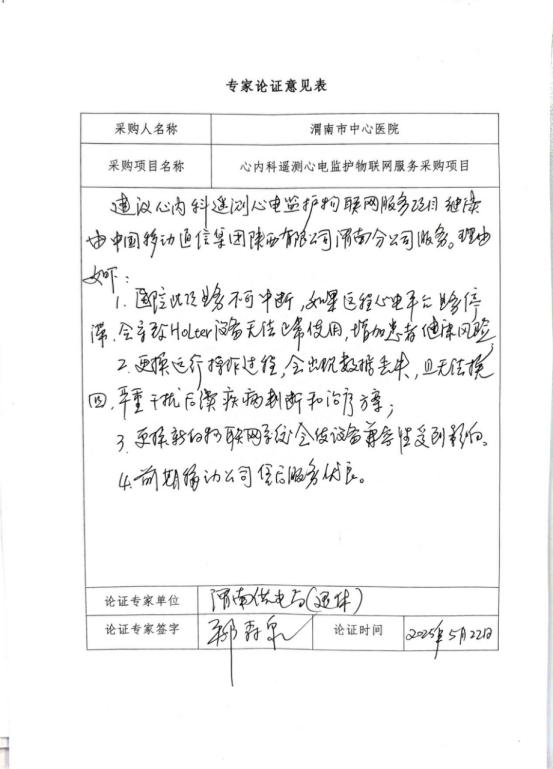 专家论证意见表
采购人名称 渭南市中心医院
采购项目名称 心内科遥测心电监护物联网服务采购项目
建议心内科遥测心电监护物联网服务项目继续
由中国移动通信集团陕西有限公司渭南分公司服务。理由
如下：
1. 医院此项业务不可中断，如果远程心电平台业务停
滞，会导致Holter设备无法正常使用，增加患者健康风险
2. 更换运行操作过程，会出现数据丢失，且无法挽
回，严重干扰后续疾病判断和治疗方案；
3. 更换新的物联网系统会使设备兼容性受到影响。
4. 前期移动公司售后服务优良。
论证专家单位 渭南供电局(退休)
论证专家签字 论证时间 2025年5月22日